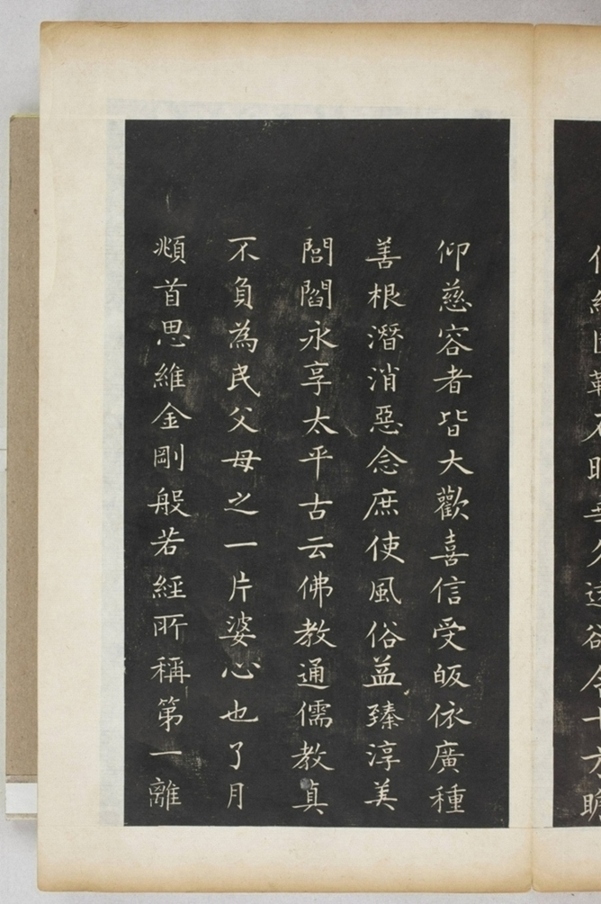 仰慈容者皆大歡喜信受皈依廣種
善根潛消惡念庶使風俗益臻淳美
閭閻永享太平古云佛教通儒教真
不負為民父母之一片婆心也了月
頫首思維金剛般若經所稱第一離